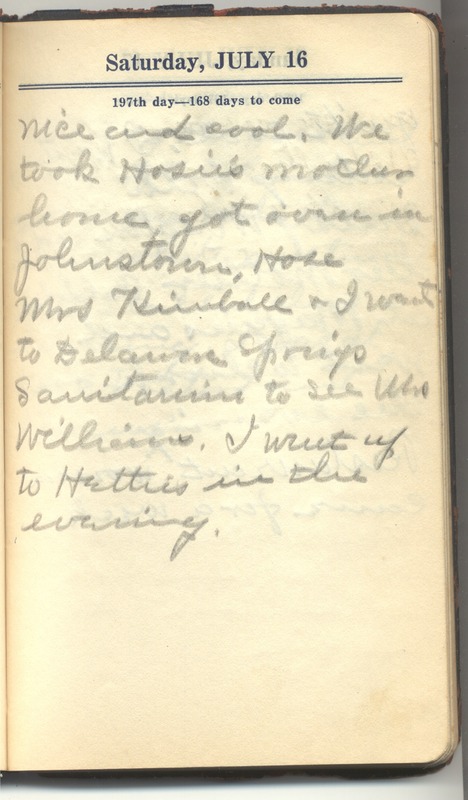 Saturday, JULY 16
197th day—168 days to come
Nice and cool. We
took Hosie's mother
home, got oven in
Johnstown, Hose
Mrs Kimball & I went
to Delawan Springs
Sanitarium to see Mrs
William. I went up
to Hatties in the
evening.